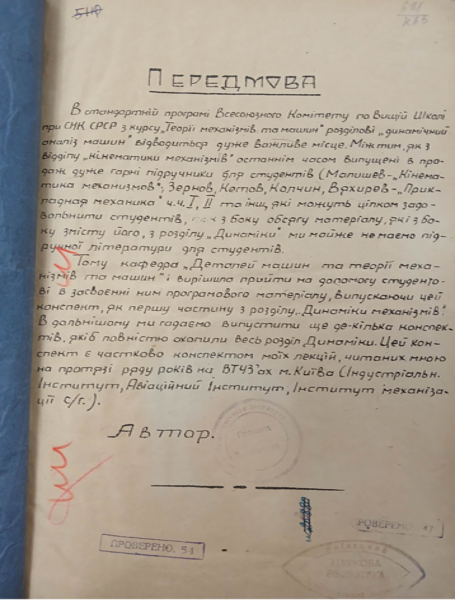 ПЕРЕДМОВА
В стандартній програмі Всесоюзного Комітету по Вищій Школі
при СНК СРСР з курсу „Теорії механізмів та машин" розділові „динамічний
аналіз машин" відводиться дуже важливе місце. Між тим, як з
відділу „Кінематики механізмів" останнім часом випущені в про-
даж дуже гарні підручники для студентів (Малишев-„Кінема-
тика механизмов"; Зернов, Котов, Колчин, Вяхирев-„Прик-
ладная механика" ч.ч. I, II та інші, які можуть цілком задо-
вольнити студентів, з боку обсягу матеріалу, які з бо-
ку змісту його, з розділу „Динаміки" ми майже не маємо під-
ручної літератури для студентів.
Тому кафедра „Деталей машин та теорії меха-
нізмів та машин" і вирішила прийти на допомогу студенто-
ві в засвоєнні ним програмового матеріалу, випускаючи цей
конспект, як першу частину з розділу „Динаміки механізмів".
В дальнішому ми гадаємо випустити ще де-кілька конспек-
тів, які б повністю охопили весь розділ Динаміки. Цей кон-
спект є частково конспектом моїх лекцій, читаних мною
на протязі ряду років на ВТУЗ'ах м. Києва (Індустріальн.
Інститут, Авіаційний Інститут, Інститут механіза-
ції с/г.).
Автор.
ПРОВЕРЕНО 54
ПРОВЕРЕНО 47